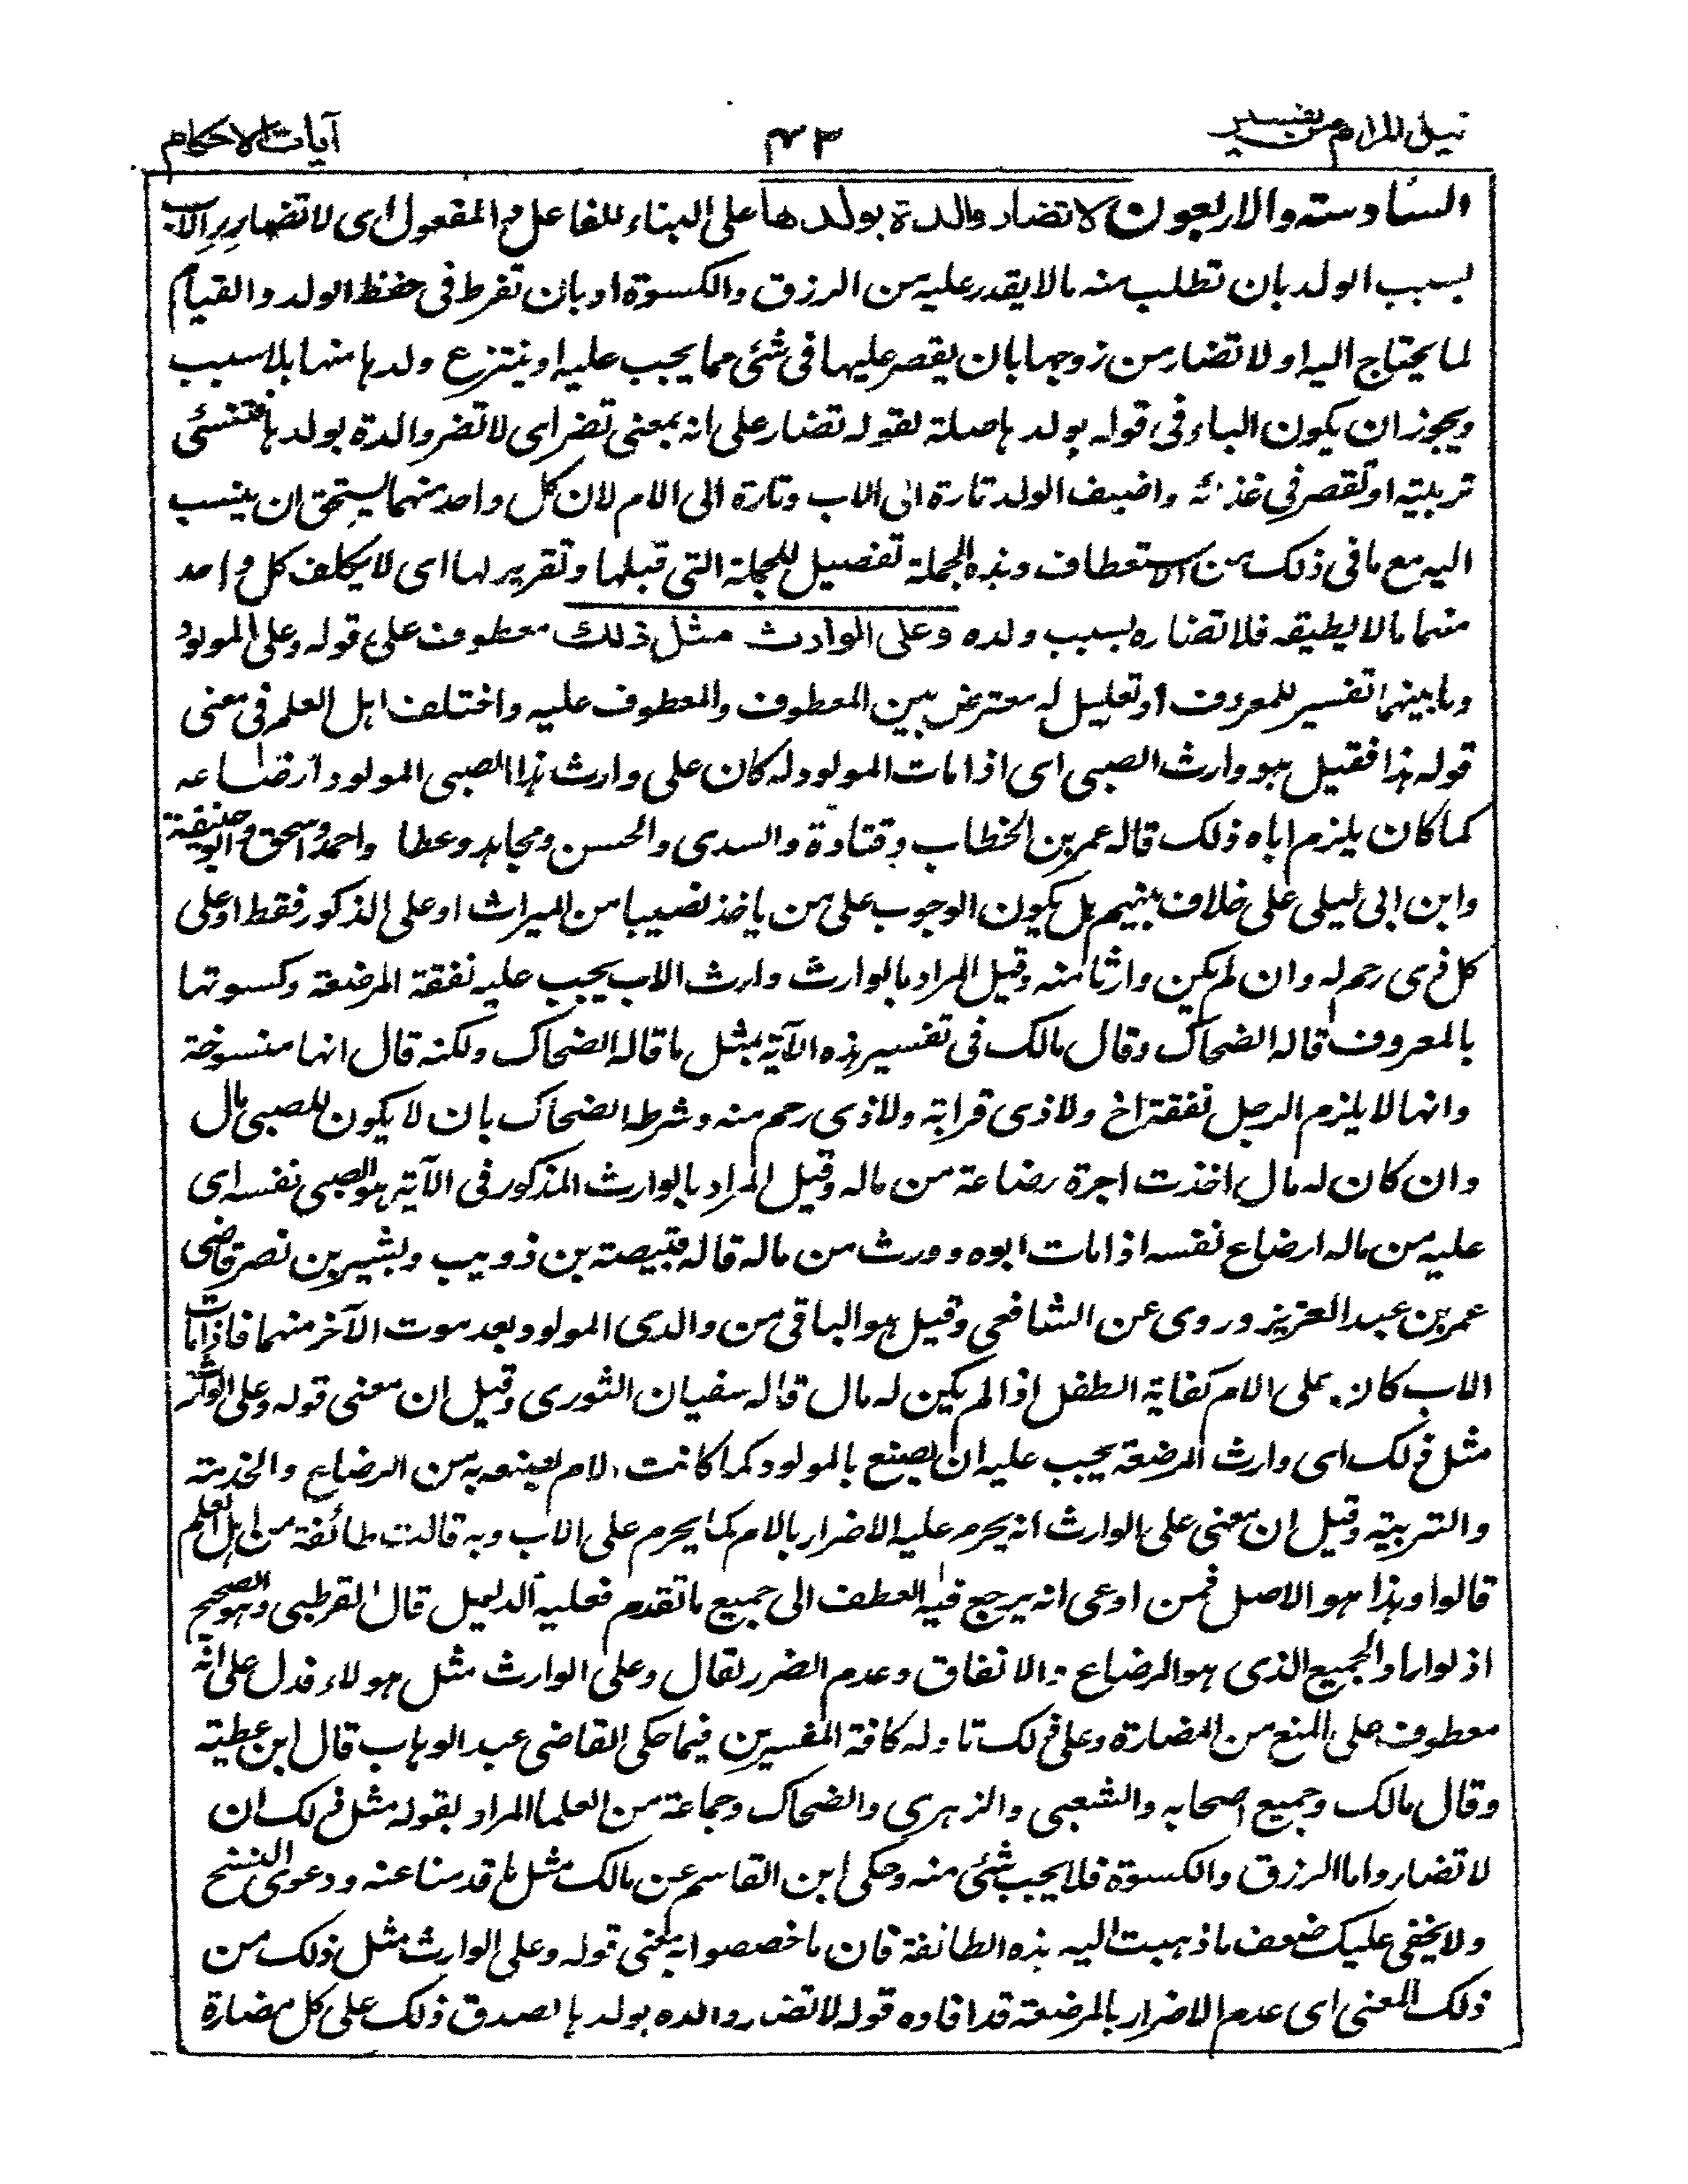 نيل المرام من تفسير
٤٣
آيات الاحكام
السادسة والاربعون لا تضار والدة بولدها على البناء للفاعل او المفعول اى لا تضار الاب
بسبب الولد بان تطلب منه مالا يقدر عليه من الرزق والكسوة او بان تفرط فى حفظ الولد والقيام
لما يحتاج اليه او لا تضار من زوجها بان يقصر عليها فى شئى مما يجب عليه او ينتزع ولدها منها بلا سبب
ويجوز ان يكون الباء فى قوله بولدها صلة لقوله تضار على انه بمعنى تضر اى لا تضر والدة بولدها فتسئى
تربيته او تقصر فى غذائه واضيف الولد تارة الى الاب وتارة الى الام لان كل واحد منهما يستحق ان ينسب
اليه مع ما فى ذلك من الاستعطاف وهذه الجملة تفصيل للجملة التى قبلها وتقرير لها اى لا يكلف كل واحد
منهما مالا يطيقه فلا تضاره بسبب ولده وعلى الوارث مثل ذلك معطوف على قوله وعلى المولود
وما بينهما تفسير للمعروف او تعليل له معترض بين المعطوف والمعطوف عليه واختلف اهل العلم فى معنى
قوله هذا فقيل هو وارث الصبى اى اذا مات المولود له كان على وارث هذا الصبى المولود ارضاعه
كما كان يلزم اباه ذلك قاله عمر بن الخطاب وقتادة والسدى والحسن ومجاهد وعطا واحمد واسحق وابو حنيفة
وابن ابى ليلى على خلاف بينهم هل يكون الوجوب على من ياخذ نصيبا من الميراث او على الذكور فقط او على
كل ذى رحم له وان لم يكن وارثا منه وقيل المراد بالوارث وارث الاب يجب عليه نفقة المرضعة وكسوتها
بالمعروف قاله الضحاك وقال مالك فى تفسير هذه الآية بمثل ما قاله الضحاك ولكنه قال انها منسوخة
وانها لا يلزم الرجل نفقة اخ ولا ذى قرابة ولا ذى رحم منه وشرط الضحاك بان لا يكون للصبى مال
وان كان له مال اخذت اجرة رضاعة من ماله وقيل المراد بالوارث المذكور فى الآية هو الصبى نفسه اى
عليه من ماله ارضاع نفسه اذا مات ابوه وورث من ماله قاله قبيصة بن ذويب وبشير بن نصر قاضى
عمر بن عبد العزيز وروى عن الشافعى وقيل هو الباقى من والدى المولود بعد موت الآخر منهما فاذا مات
الاب كان على الام كفاية الطفل اذا لم يكن له مال قاله سفيان الثورى وقيل ان معنى قوله وعلى الوارث
مثل ذلك اى وارث المرضعة يجب عليه ان يصنع بالمولود كما كانت الام تصنعه به من الرضاع والخدمة
والتربية وقيل ان معنى على الوارث انه يحرم عليه الاضرار بالام كما يحرم على الاب وبه قالت طائفة من اهل العلم
قالوا وهذا هو الاصل فمن ادعى انه يرجع فيه العطف الى جميع ما تقدم فعليه الدليل قال القرطبى وهو الصحيح
اذ لو اراد الجميع الذى هو الرضاع والانفاق وعدم الضرر لقال وعلى الوارث مثل هولاء فدل على انه
معطوف على المنع من المضارة وعلى ذلك تاوله كافة المفسرين فيما حكى القاضى عبد الوهاب قال ابن عطية
وقال مالك وجميع اصحابه والشعبى والزهرى والضحاك وجماعة من العلما المراد بقوله مثل ذلك ان
لا تضار واما الرزق والكسوة فلا يجب شئى منه وحكى ابن القاسم عن مالك مثل ما قدمنا عنه ودعوى النسخ
ولا يخفى عليك ضعف ما ذهبت اليه هذه الطائفة فان ما خصصوا به معنى قوله وعلى الوارث مثل ذلك من
ذلك المعنى اى عدم الاضرار بالمرضعة قد افاده قوله لا تضار والده بولدها لصدق ذلك على كل مضارة